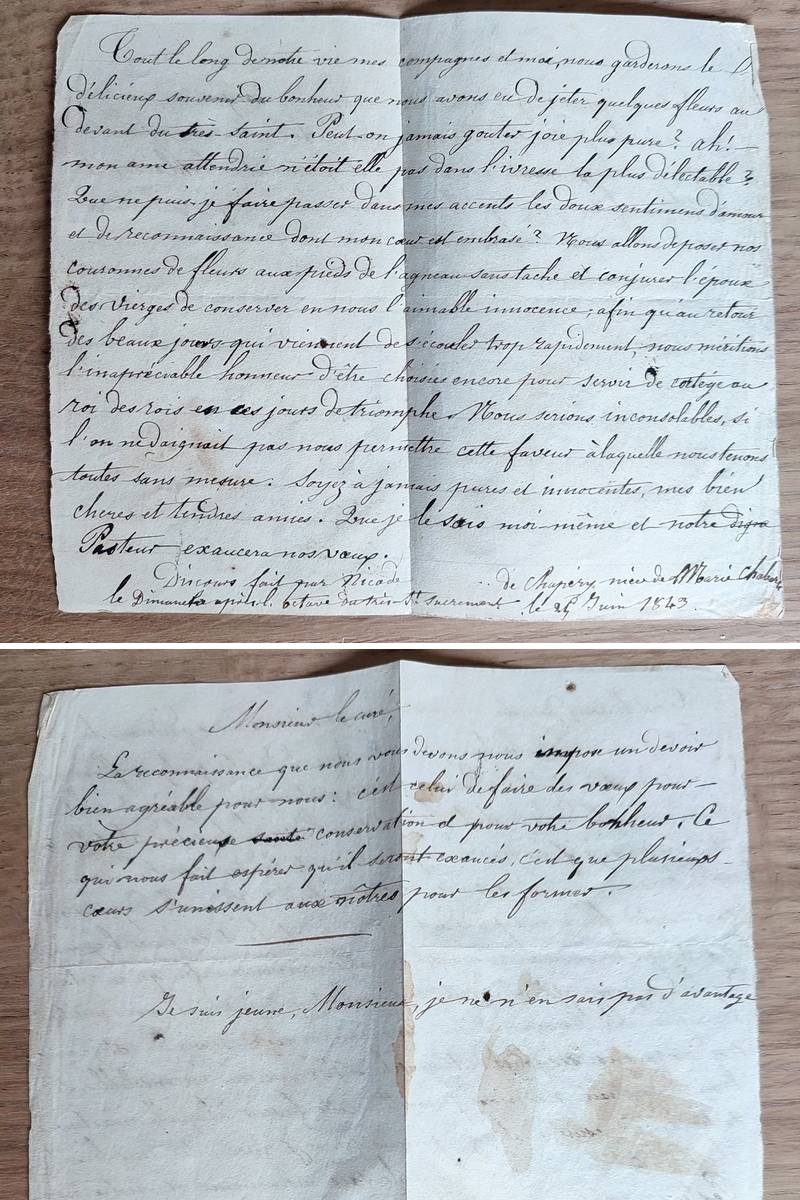 Tout le long de notre vie mes compagnes et moi, nous garderons le
délicieux souvenir du bonheur que nous avons eu de jeter quelques fleurs au
devant du très-saint. Peut-on jamais gouter joie plus pure? ah! —
mon ame attendrie n'étoit elle pas dans l'ivresse la plus délectable?
Que ne puis-je faire passer dans mes accents les doux sentimens d'amour
et de reconnaissance dont mon cœur est embrasé? Nous allons déposer nos
couronnes de fleurs aux pieds de l'agneau sans tache et conjurer l'époux
des vierges de conserver en nous l'aimable innocence; afin qu'au retour
des beaux jours qui viennent de s'écouler trop rapidement, nous méritions
l'inapréciable honneur d'être choisies encore pour servir de cortége au
roi des rois en ces jours de triomphe. Nous serions inconsolables, si
l'on ne daignait pas nous permettre cette faveur à laquelle nous tenons
toutes sans mesure. Soyez à jamais pures et innocentes, mes bien
cheres et tendres amies. Que je le sois moi-même et notre digne
Pasteur exaucera nos vœux.
Discours fait par de Chapéry, nièce de Marie
le Dimanche après l'octave du très-St Sacrement le 25 Juin 1843.
Monsieur le curé,
La reconnaissance que nous vous devons nous impose un devoir
bien agréable pour nous: c'est celui de faire des vœux pour —
votre précieuse santé conservation et pour votre bonheur. Ce
qui nous fait espérer qu'il seront exaucés, c'est que plusieurs —
cœurs s'unissent aux nôtres pour les former.
Je suis jeune, Monsieur, je ne n'en sais pas d'avantage